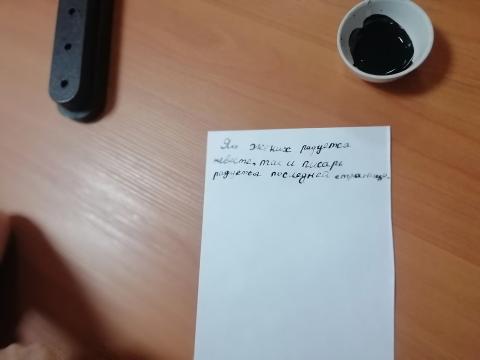 Яко жених радуется
невесте, так и писарь
радуется последней странице